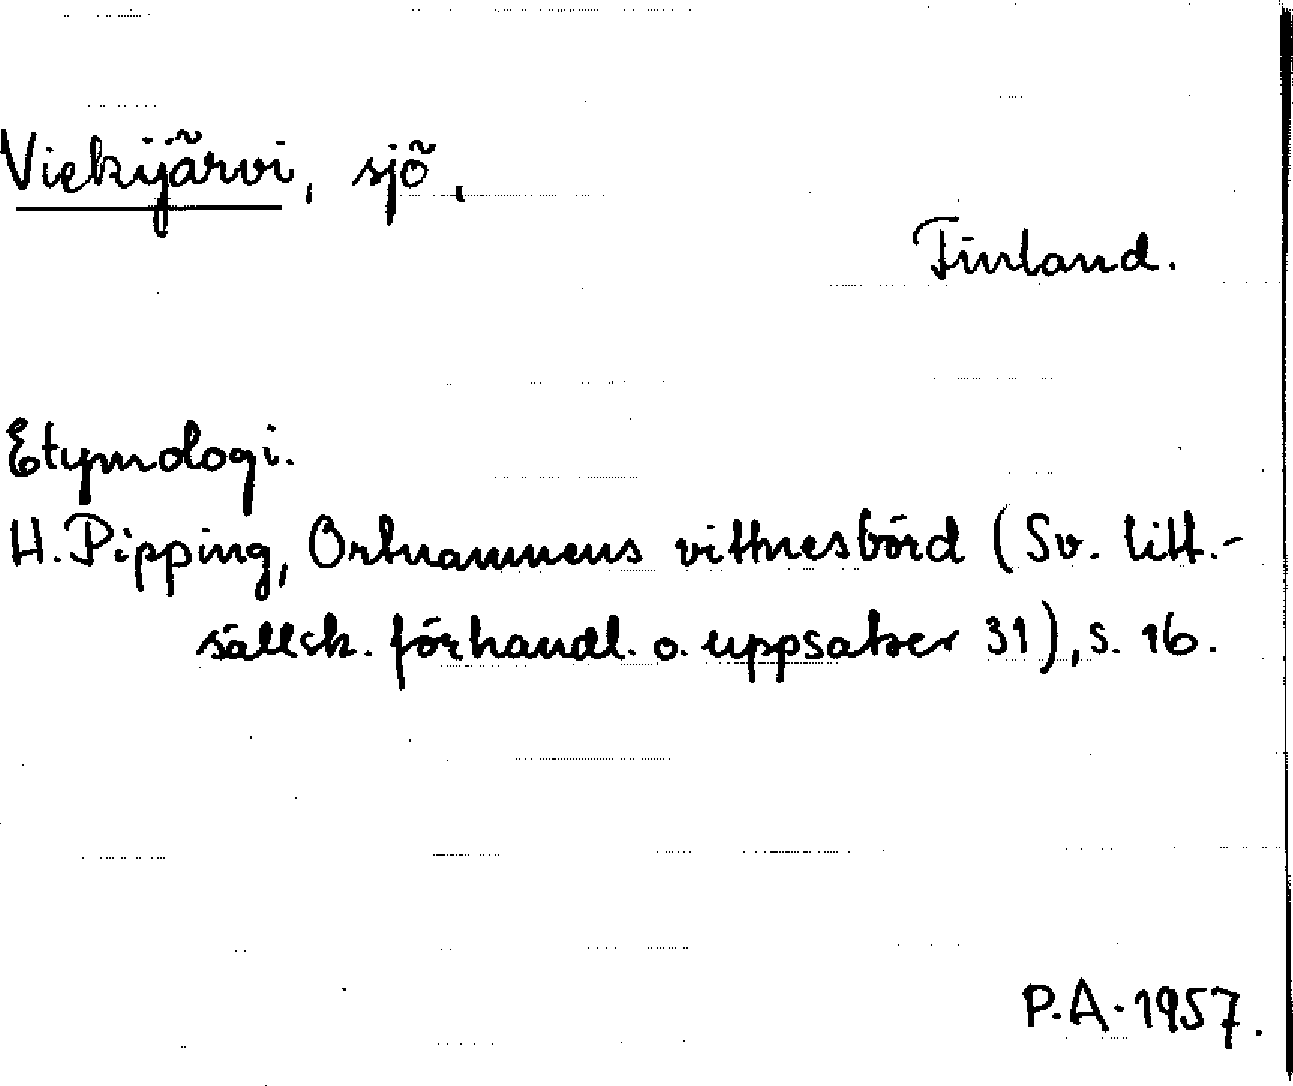 Viekijärvi, sjö,
Finland.
Etymologi.
H. Pipping, Ortnamnens vittnesbörd (Sv. litt.-
sällsk. förhandl. o. uppsatser 31), s. 16.
P.A. 1957.